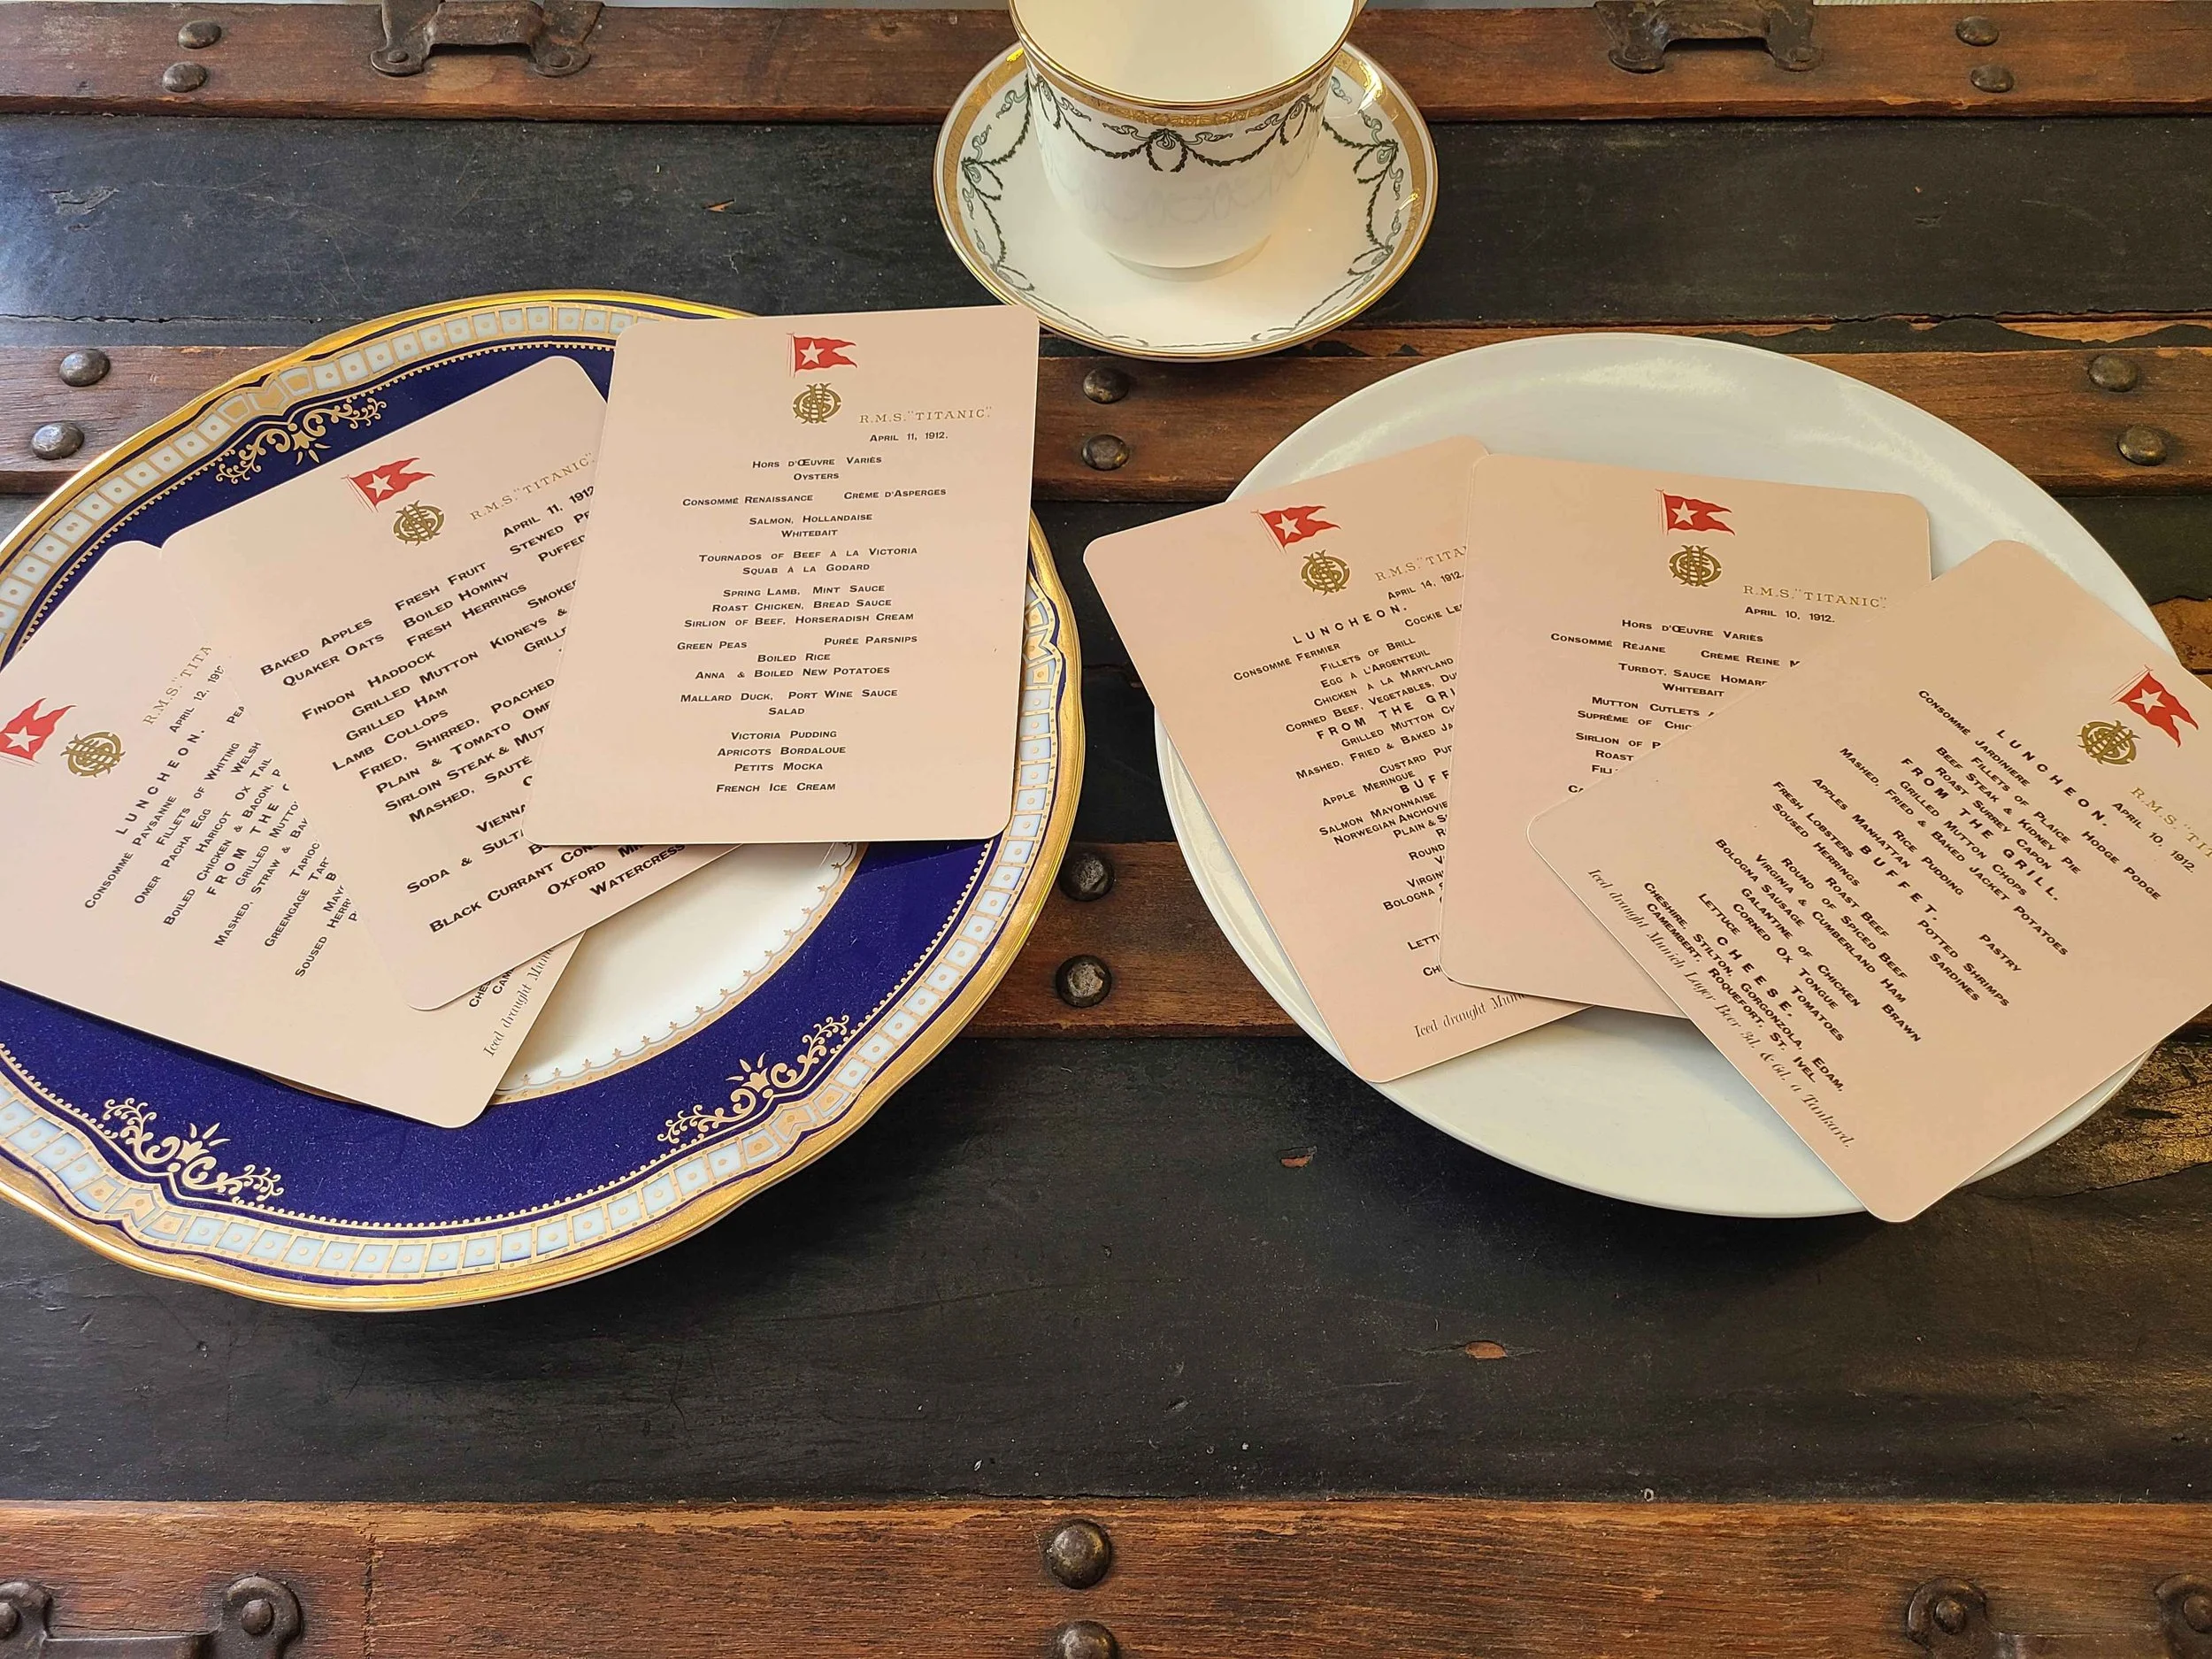 R.M.S. "TITA
APRIL 12, 191
LUNCHEON.
CONSOMMÉ PAYSANNE PEA
FILLETS OF WHITING
OMER PACHA EGG WELSH
HARICOT OX TAIL
BOILED CHICKEN & BACON, P
FROM THE G
GRILLED MUTTO
MASHED, STRAW & BA
TAPIOC
GREENGAGE TART
B
SOUSED HERR
P
CHES
CAM
Iced draught Mun
R.M.S. "TITANIC".
APRIL 11, 1912
BAKED APPLES FRESH FRUIT STEWED PR
QUAKER OATS BOILED HOMINY PUFFED
FRESH HERRINGS
FINDON HADDOCK SMOKE
GRILLED MUTTON KIDNEYS &
GRILLED HAM GRILLE
LAMB COLLOPS
FRIED, SHIRRED, POACHED
PLAIN & TOMATO OME
SIRLOIN STEAK & MUT
MASHED, SAUTÉ
VIENNA
SODA & SULTA
B
BLACK CURRANT CON
OXFORD M
WATERCRESS
R.M.S. "TITANIC".
APRIL 11, 1912.
HORS D'ŒUVRE VARIÉS
OYSTERS
CONSOMMÉ RENAISSANCE CRÈME D'ASPERGES
SALMON, HOLLANDAISE
WHITEBAIT
TOURNADOS OF BEEF À LA VICTORIA
SQUAB À LA GODARD
SPRING LAMB, MINT SAUCE
ROAST CHICKEN, BREAD SAUCE
SIRLION OF BEEF, HORSERADISH CREAM
GREEN PEAS PURÉE PARSNIPS
BOILED RICE
ANNA & BOILED NEW POTATOES
MALLARD DUCK, PORT WINE SAUCE
SALAD
VICTORIA PUDDING
APRICOTS BORDALOUE
PETITS MOCKA
FRENCH ICE CREAM
R.M.S. "TITA
APRIL 14, 1912.
LUNCHEON.
CONSOMMÉ FERMIER COCKIE LE
FILLETS OF BRILL
EGG À L'ARGENTEUIL
CHICKEN À LA MARYLAND
CORNED BEEF, VEGETABLES, DU
FROM THE GRI
GRILLED MUTTON CH
MASHED, FRIED & BAKED JA
CUSTARD PUD
APPLE MERINGUE
BUFF
SALMON MAYONNAISE
NORWEGIAN ANCHOVIE
PLAIN & S
R
ROUND
V
VIRGIN
BOLOGNA S
LETTU
CH
Iced draught Mun
R.M.S. "TITANIC".
APRIL 10, 1912.
HORS D'ŒUVRE VARIÉS
CONSOMMÉ RÉJANE CRÈME REINE M
TURBOT, SAUCE HOMAR
WHITEBAIT
MUTTON CUTLETS
SUPRÊME OF CHIC
SIRLION OF
ROAST
FILL
CA
R.M.S. "TI
APRIL 10, 1912.
LUNCHEON.
CONSOMMÉ JARDINIERE HODGE PODGE
FILLETS OF PLAICE
BEEF STEAK & KIDNEY PIE
ROAST SURREY CAPON
FROM THE GRILL.
GRILLED MUTTON CHOPS
MASHED, FRIED & BAKED JACKET POTATOES
RICE PUDDING
APPLES MANHATTAN PASTRY
BUFFET.
FRESH LOBSTERS POTTED SHRIMPS
SOUSED HERRINGS SARDINES
ROAST BEEF
ROUND OF SPICED BEEF
VIRGINIA & CUMBERLAND HAM
BOLOGNA SAUSAGE BRAWN
GALANTINE OF CHICKEN
CORNED OX TONGUE
LETTUCE TOMATOES
CHEESE.
CHESHIRE, STILTON, GORGONZOLA, EDAM,
CAMEMBERT, ROQUEFORT, ST. IVEL
Iced draught Munich Lager Beer 3d. & 6d. a Tankard.